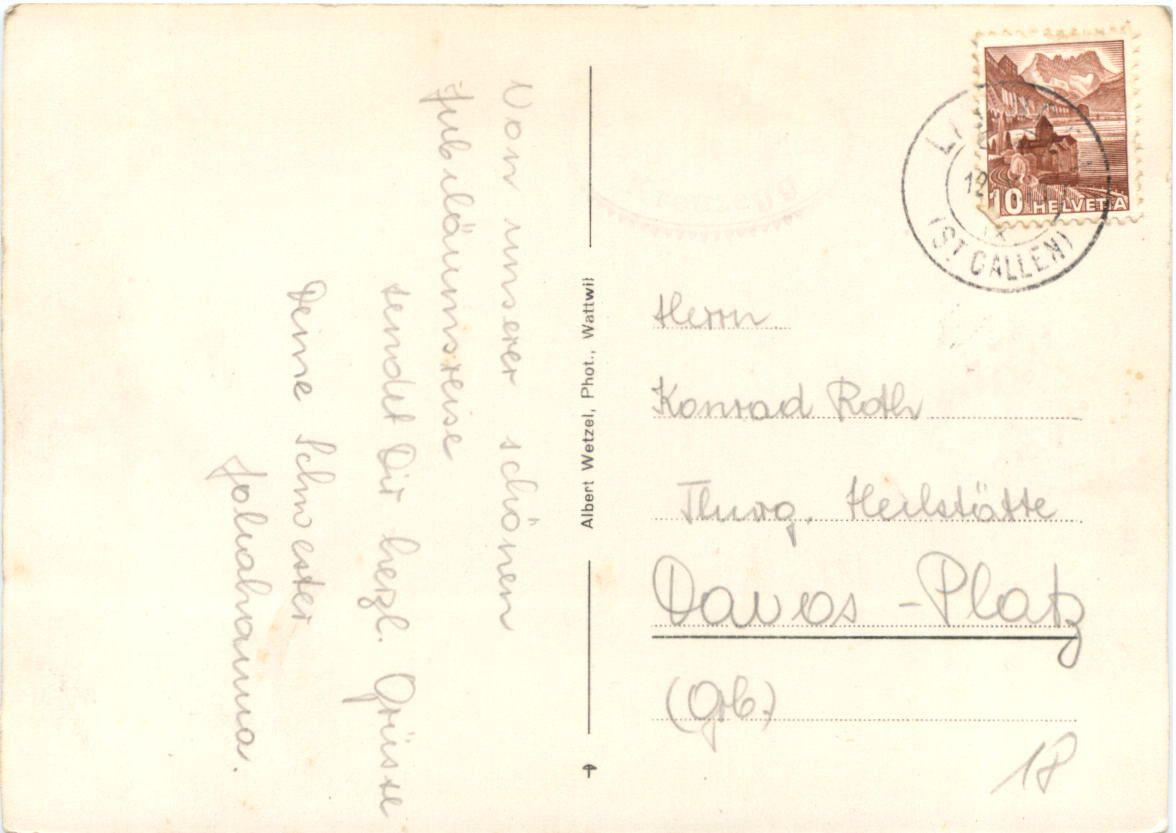 Von unserer schönen
Jubiläumsreise
sendet Dir herzl. Grüsse
Deine Schwester
Johahanna.
Albert Wetzel, Phot., Wattwil
10 HELVETIA
12
(ST GALLEN)
Kreuzegg
Herrn
Konrad Roth
Thurg. Heilstätte
Davos - Platz
(Grb.)
18